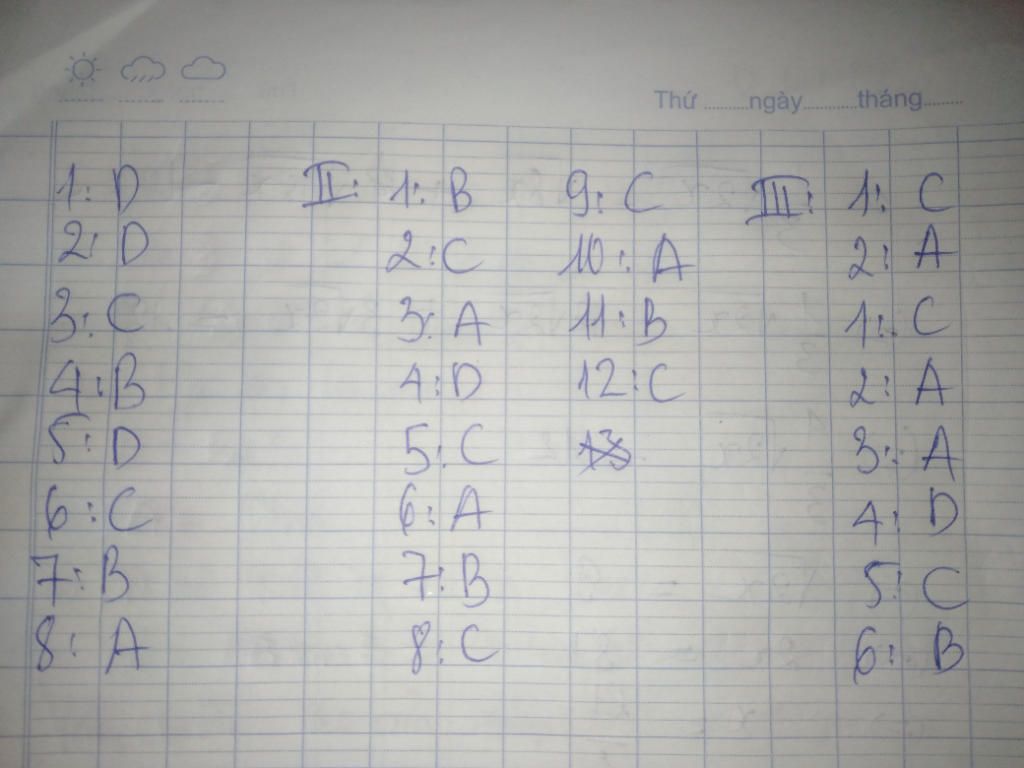 Thứ ........ngày.........tháng.......
1: D
2: D
3: C
4: B
5: D
6: C
7: B
8: A
II: 1: B
2: C
3: A
4: D
5: C
6: A
7: B
8: C
9: C
10: A
11: B
12: C
III: 1: C
2: A
1: C
2: A
3: A
4: D
5: C
6: B